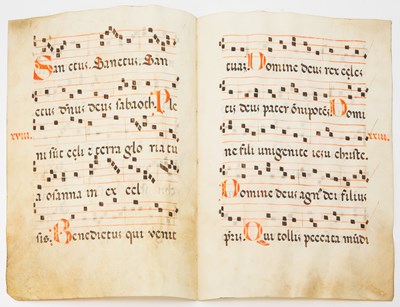 Sanctus. Sanctus. San
ctus dn̄us deus sabaoth. Ple
xviii.
ni sūt celi z terra glo ria tu
a osanna in ex cel
sis. Benedictus qui venit
tuaz. Domine deus rex celes
tis deus pater om̄ipotēs. Domi
xxiii.
ne fili unigenite iesu christe.
Domine deus agn̄ dei filius
pr̄is. Qui tollis peccata mūdi